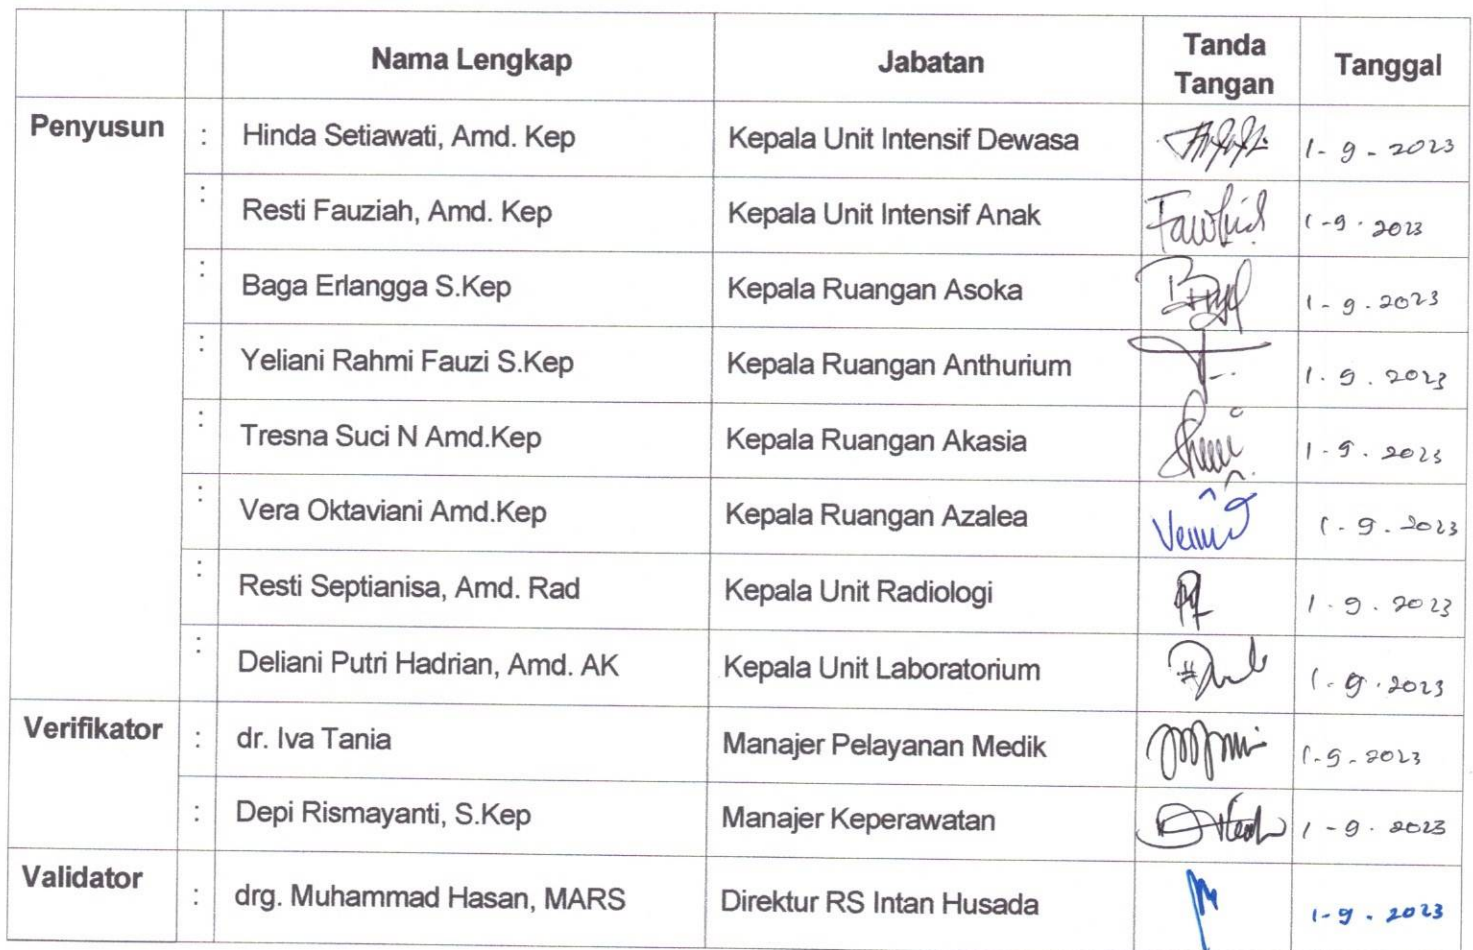 Nama Lengkap Jabatan Tanda Tangan Tanggal
Penyusun : Hinda Setiawati, Amd. Kep Kepala Unit Intensif Dewasa 1-9-2023
: Resti Fauziah, Amd. Kep Kepala Unit Intensif Anak 1-9-2023
: Baga Erlangga S.Kep Kepala Ruangan Asoka 1-9-2023
: Yeliani Rahmi Fauzi S.Kep Kepala Ruangan Anthurium 1.9.2023
: Tresna Suci N Amd.Kep Kepala Ruangan Akasia 1-9.2023
: Vera Oktaviani Amd.Kep Kepala Ruangan Azalea 1-9-2023
: Resti Septianisa, Amd. Rad Kepala Unit Radiologi 1.9.2023
: Deliani Putri Hadrian, Amd. AK Kepala Unit Laboratorium 1-9.2023
Verifikator : dr. Iva Tania Manajer Pelayanan Medik 1-9-2023
: Depi Rismayanti, S.Kep Manajer Keperawatan 1-9.2023
Validator : drg. Muhammad Hasan, MARS Direktur RS Intan Husada 1-9-2023